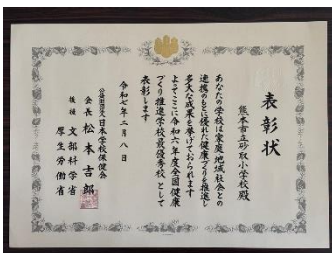 表彰状
熊本市立砂取小学校殿
あなたの学校は家庭地域社会との
連携のもとに優れた健康づくりを推進し
多大な成果を挙げておられます
よってここに令和六年度全国健康
づくり推進学校最優秀校として
表彰します
令和七年二月八日
公益財団法人日本学校保健会
会長 松本吉郎
後援 文部科学省
厚生労働省